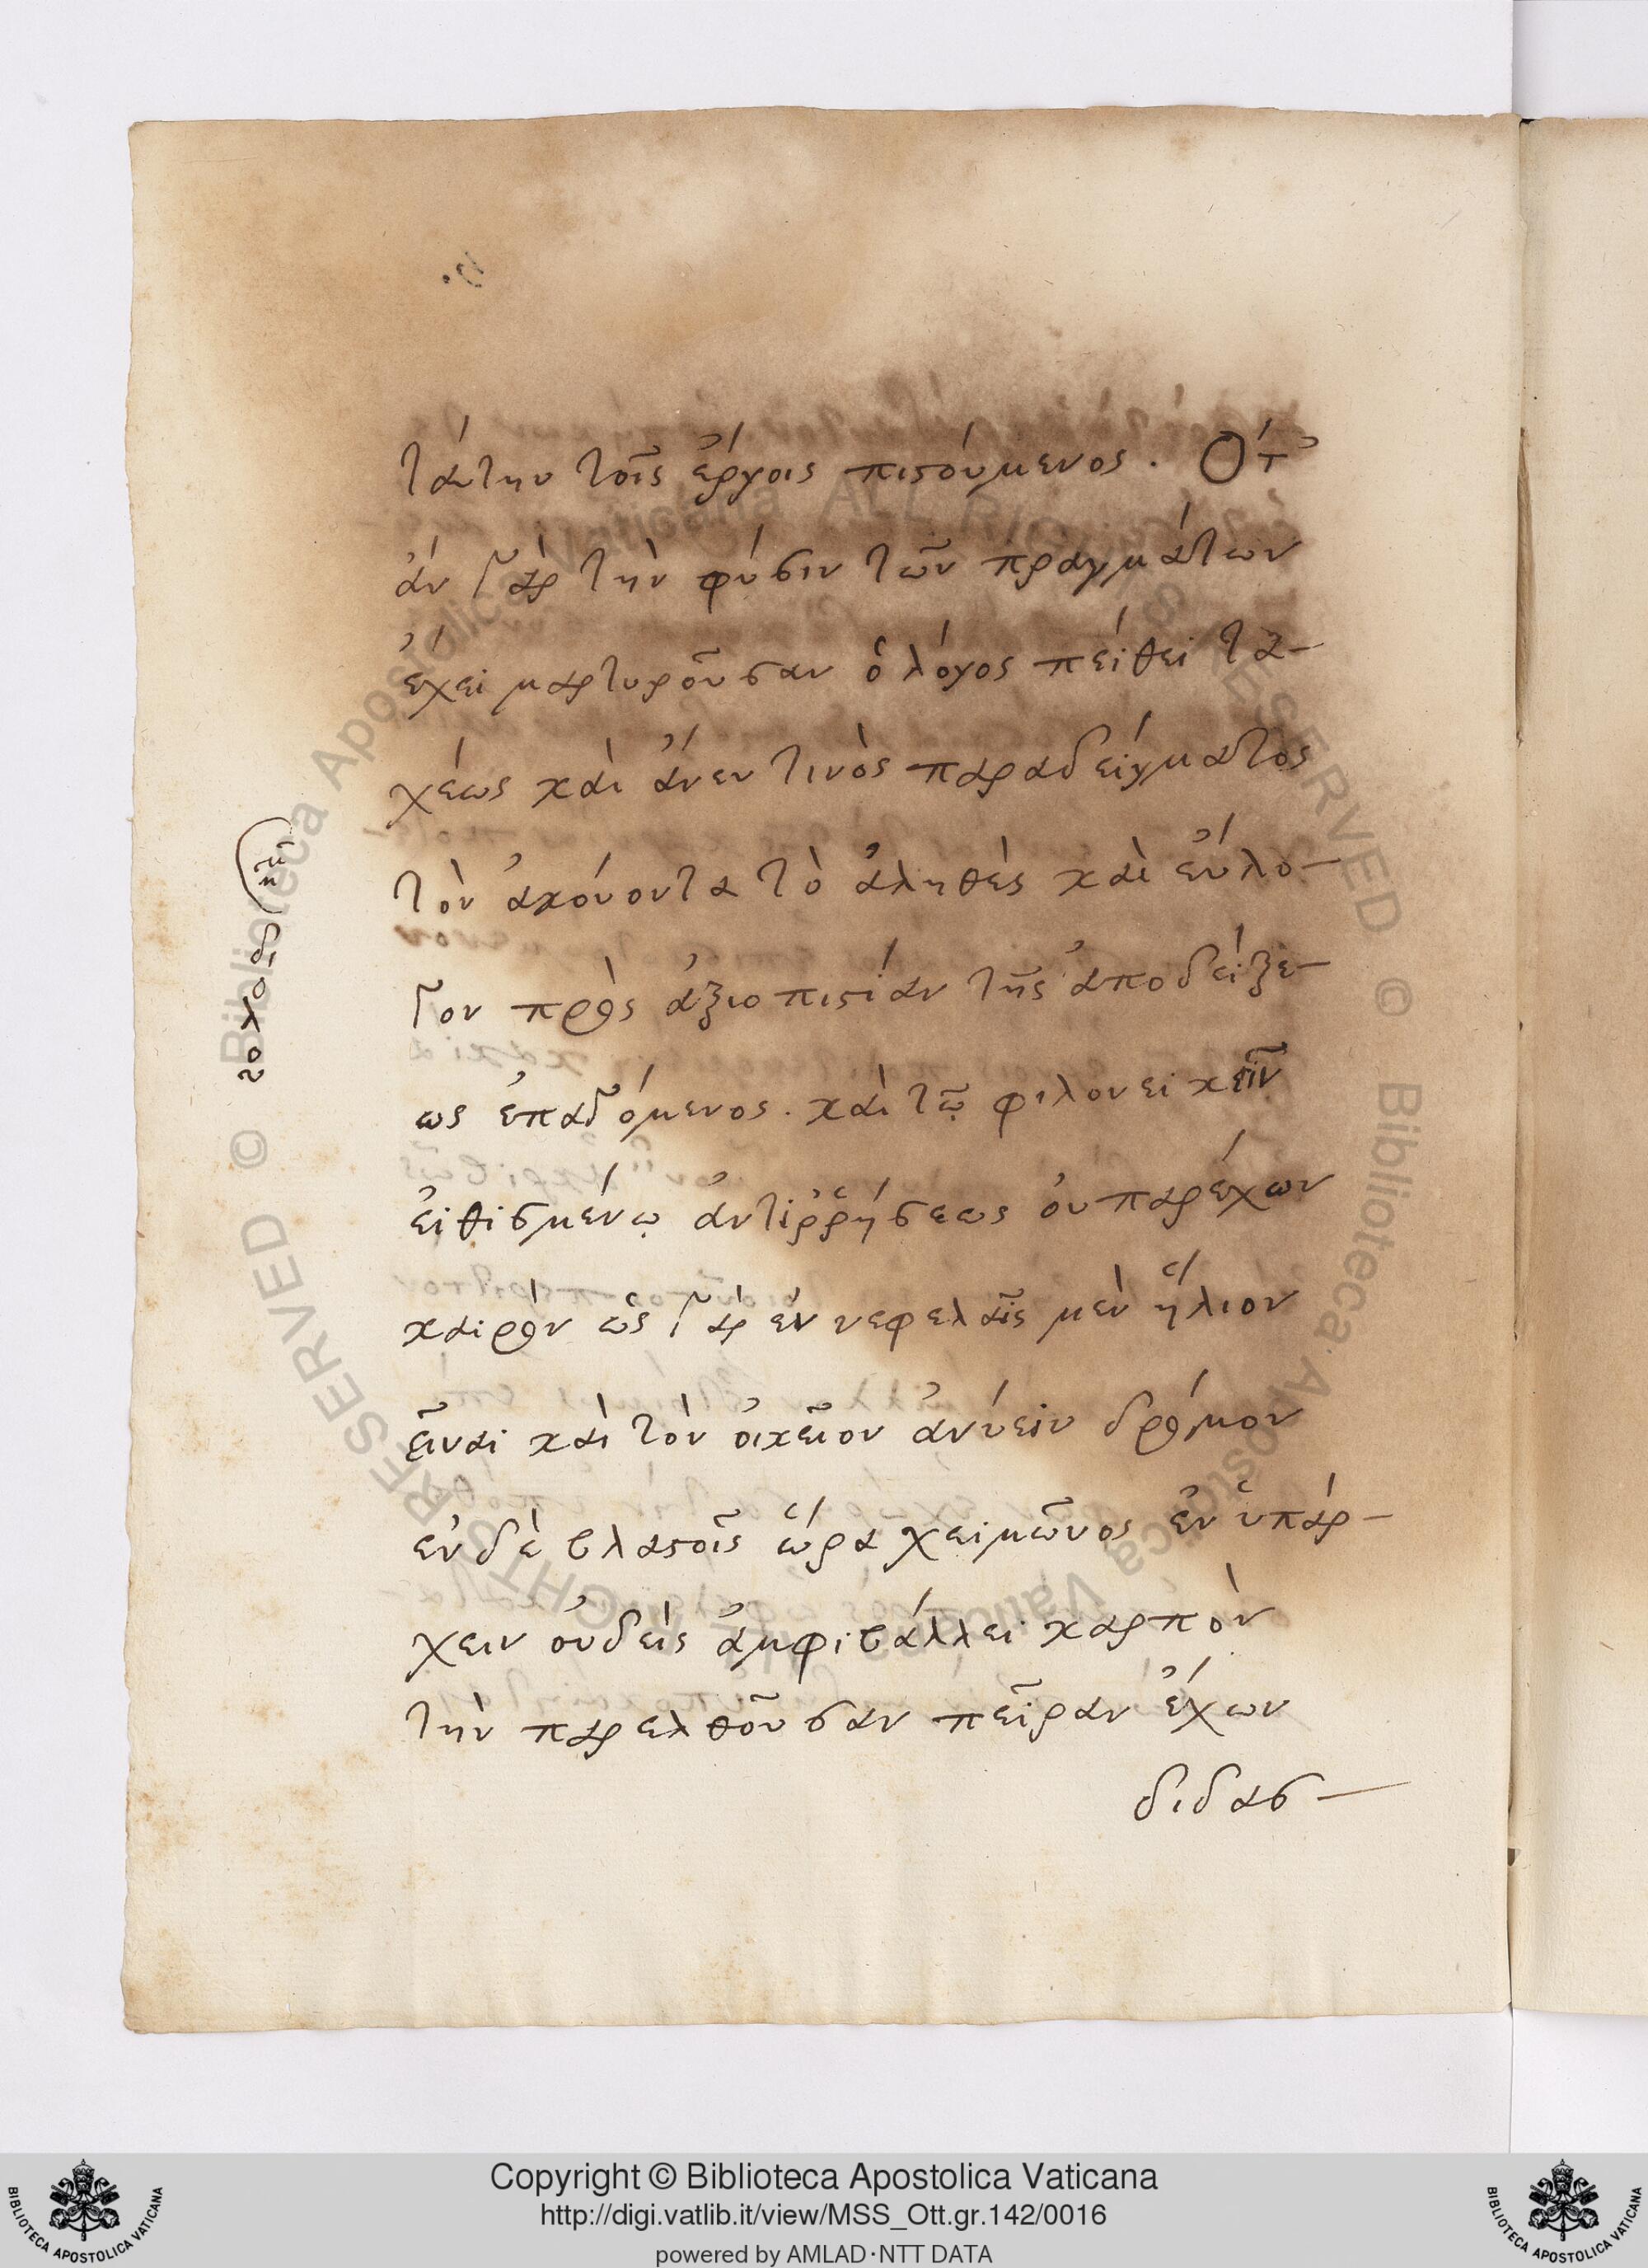 ταύτην τοῖς ἔργοις πιστούμενος. Ὅτ'
ἀν γὰρ τὴν φύσιν τῶν πραγμάτων
ἔχει μαρτυροῦσαν ὁ λόγος πείθει τα-
χέως καὶ ἄνευ τινὸς παραδείγματος
τὸν ἀκούοντα τὸ ἀληθὲς καὶ εὔλο-
γον πρὸς ἀξιοπιστίαν τῆς ἀποδείξε-
ως ἐπαγόμενος. καὶ τῷ φιλονεικεῖν
εἰθισμένῳ ἀντιῤῥήσεως οὐ παρέχων
καιρὸν ὡς γὰρ ἐν νεφέλαις μὲν ἥλιον
εἶναι καὶ τὸν οἰκεῖον ἀνύειν δρόμον
ἐν δὲ βλαστοῖς ὥρα χειμῶνος ἐνυπάρ-
χειν οὐδεὶς ἀμφιβάλλει καρπὸν
τὴν παρελθοῦσαν πεῖραν ἔχων
διδασ-
Copyright © Biblioteca Apostolica Vaticana
http://digi.vatlib.it/view/MSS_Ott.gr.142/0016
powered by AMLAD·NTT DATA
BIBLIOTECA APOSTOLICA VATICANA
BIBLIOTECA APOSTOLICA VATICANA